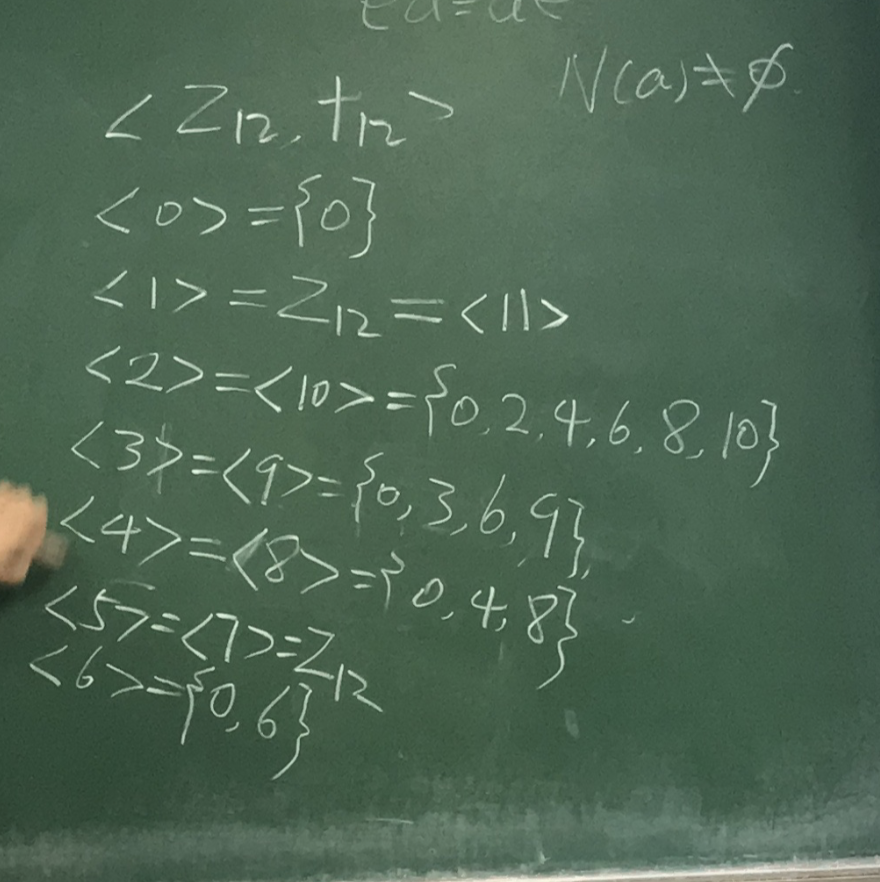 ea=ae
N(a)≠∅.
<Z₁₂,+₁₂>
<0>={0}
<1>=Z₁₂=<11>
<2>=<10>={0,2,4,6,8,10}
<3>=<9>={0,3,6,9},
<4>=<8>={0,4,8}
<5>=<7>=Z₁₂
<6>={0,6}